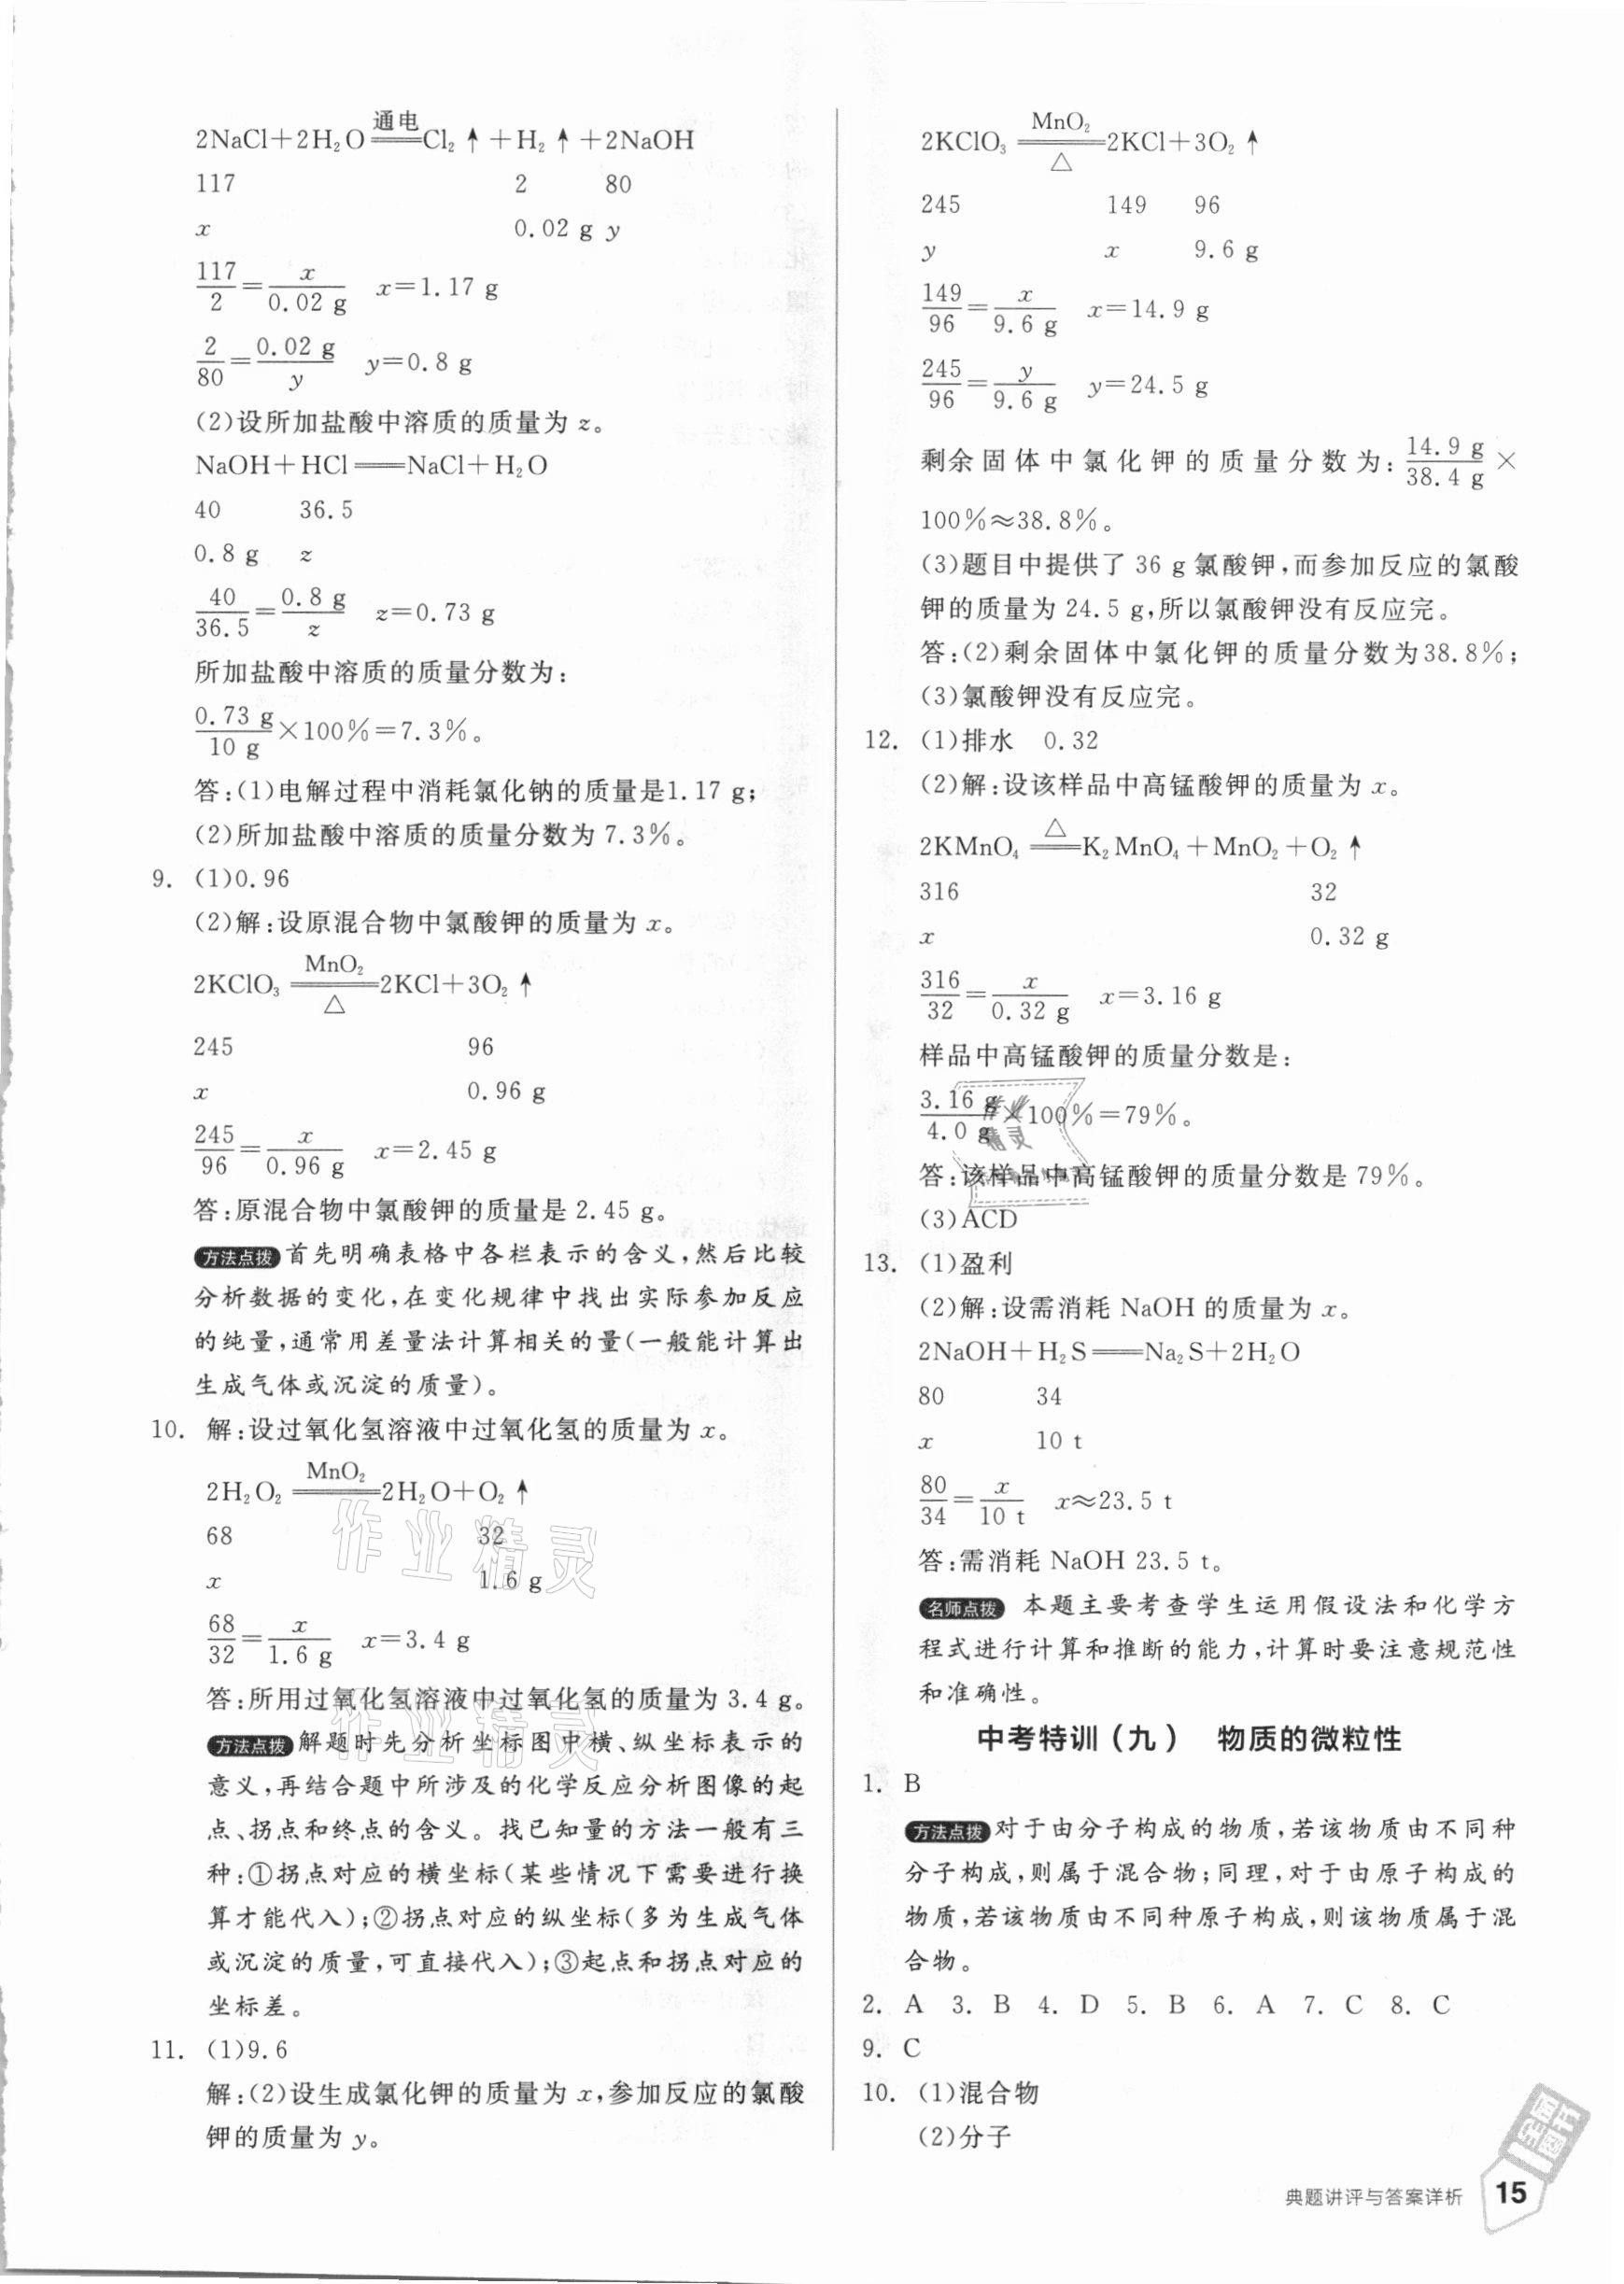 2NaCl+2H₂O ══通电══ Cl₂↑+H₂↑+2NaOH
117 2 80
x 0.02 g y
117/2=x/0.02 g x=1.17 g
2/80=0.02 g/y y=0.8 g
(2)设所加盐酸中溶质的质量为 z。
NaOH+HCl══NaCl+H₂O
40 36.5
0.8 g z
40/36.5=0.8 g/z z=0.73 g
所加盐酸中溶质的质量分数为:
0.73 g/10 g×100%=7.3%。
答:(1)电解过程中消耗氯化钠的质量是1.17 g;
(2)所加盐酸中溶质的质量分数为 7.3%。
9. (1)0.96
(2)解:设原混合物中氯酸钾的质量为 x。
2KClO₃ ══MnO₂/△══ 2KCl+3O₂↑
245 96
x 0.96 g
245/96=x/0.96 g x=2.45 g
答:原混合物中氯酸钾的质量是 2.45 g。
方法点拨 首先明确表格中各栏表示的含义,然后比较
分析数据的变化,在变化规律中找出实际参加反应
的纯量,通常用差量法计算相关的量(一般能计算出
生成气体或沉淀的质量)。
10. 解:设过氧化氢溶液中过氧化氢的质量为 x。
2H₂O₂ ══MnO₂══ 2H₂O+O₂↑
68 32
x 1.6 g
68/32=x/1.6 g x=3.4 g
答:所用过氧化氢溶液中过氧化氢的质量为 3.4 g。
方法点拨 解题时先分析坐标图中横、纵坐标表示的
意义,再结合题中所涉及的化学反应分析图像的起
点、拐点和终点的含义。找已知量的方法一般有三
种:①拐点对应的横坐标(某些情况下需要进行换
算才能代入);②拐点对应的纵坐标(多为生成气体
或沉淀的质量,可直接代入);③起点和拐点对应的
坐标差。
11. (1)9.6
解:(2)设生成氯化钾的质量为 x,参加反应的氯酸
钾的质量为 y。
2KClO₃ ══MnO₂/△══ 2KCl+3O₂↑
245 149 96
y x 9.6 g
149/96=x/9.6 g x=14.9 g
245/96=y/9.6 g y=24.5 g
剩余固体中氯化钾的质量分数为:14.9 g/38.4 g×
100%≈38.8%。
(3)题目中提供了 36 g 氯酸钾,而参加反应的氯酸
钾的质量为 24.5 g,所以氯酸钾没有反应完。
答:(2)剩余固体中氯化钾的质量分数为38.8%;
(3)氯酸钾没有反应完。
12. (1)排水 0.32
(2)解:设该样品中高锰酸钾的质量为 x。
2KMnO₄ ══△══ K₂MnO₄+MnO₂+O₂↑
316 32
x 0.32 g
316/32=x/0.32 g x=3.16 g
样品中高锰酸钾的质量分数是:
3.16 g/4.0 g×100%=79%。
答:该样品中高锰酸钾的质量分数是 79%。
(3)ACD
13. (1)盈利
(2)解:设需消耗 NaOH 的质量为 x。
2NaOH+H₂S══Na₂S+2H₂O
80 34
x 10 t
80/34=x/10 t x≈23.5 t
答:需消耗 NaOH 23.5 t。
名师点拨 本题主要考查学生运用假设法和化学方
程式进行计算和推断的能力,计算时要注意规范性
和准确性。
中考特训(九) 物质的微粒性
1. B
方法点拨 对于由分子构成的物质,若该物质由不同种
分子构成,则属于混合物;同理,对于由原子构成的
物质,若该物质由不同种原子构成,则该物质属于混
合物。
2. A 3. B 4. D 5. B 6. A 7. C 8. C
9. C
10. (1)混合物
(2)分子
典题讲评与答案详析 15
作业精灵
作业精灵